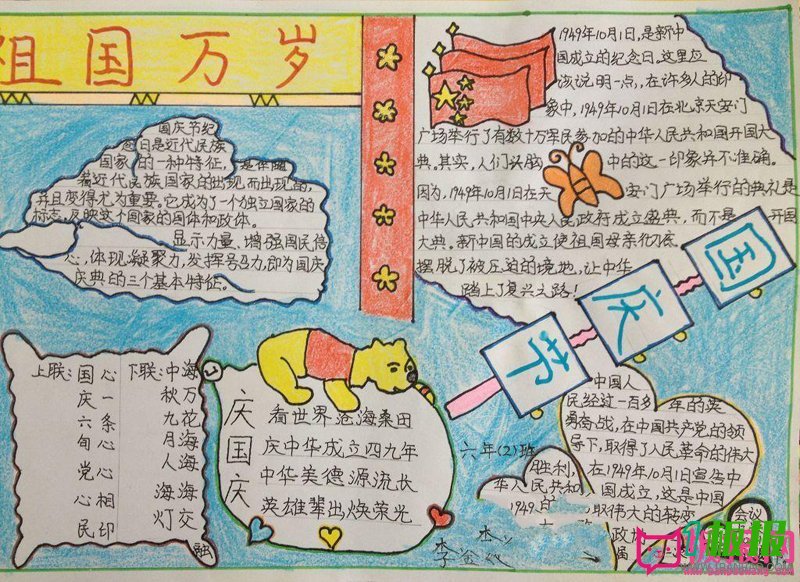 祖国万岁
国庆节纪
念日是近代民族
国家的一种特征,是伴随
着近代民族国家的出现而出现的,
并且变得尤为重要。它成为了一个独立国家的
标志,反映这个国家的国体和政体。
显示力量、增强国民信
心,体现凝聚力,发挥号召力,即为国庆
庆典的三个基本特征。
1949年10月1日,是新中
国成立的纪念日。这里应
该说明一点,在许多人的印
象中,1949年10月1日在北京天安门
广场举行了有数十万军民参加的中华人民共和国开国大
典。其实,人们头脑中的这一印象并不准确。
因为,1949年10月1日在天安门广场举行的典礼是
中华人民共和国中央人民政府成立盛典,而不是开国
大典。新中国的成立使祖国母亲彻底
摆脱了被压迫的境地,让中华
踏上了复兴之路!
国庆节
上联:国庆六旬党心民心一条心心相印
下联:中秋九月人海灯海万花海海交融
庆国庆
看世界沧海桑田
庆中华成立四九年
中华美德源流长
英雄辈出焕荣光
六年(2)班
中国人
民经过一百多年的英
勇奋战,在中国共产党的领
导下,取得了人民革命的伟大
胜利,在1949年10月1日宣告中
华人民共和国成立,这是中国
1949年的取伟大的转变
会议
政
板报网